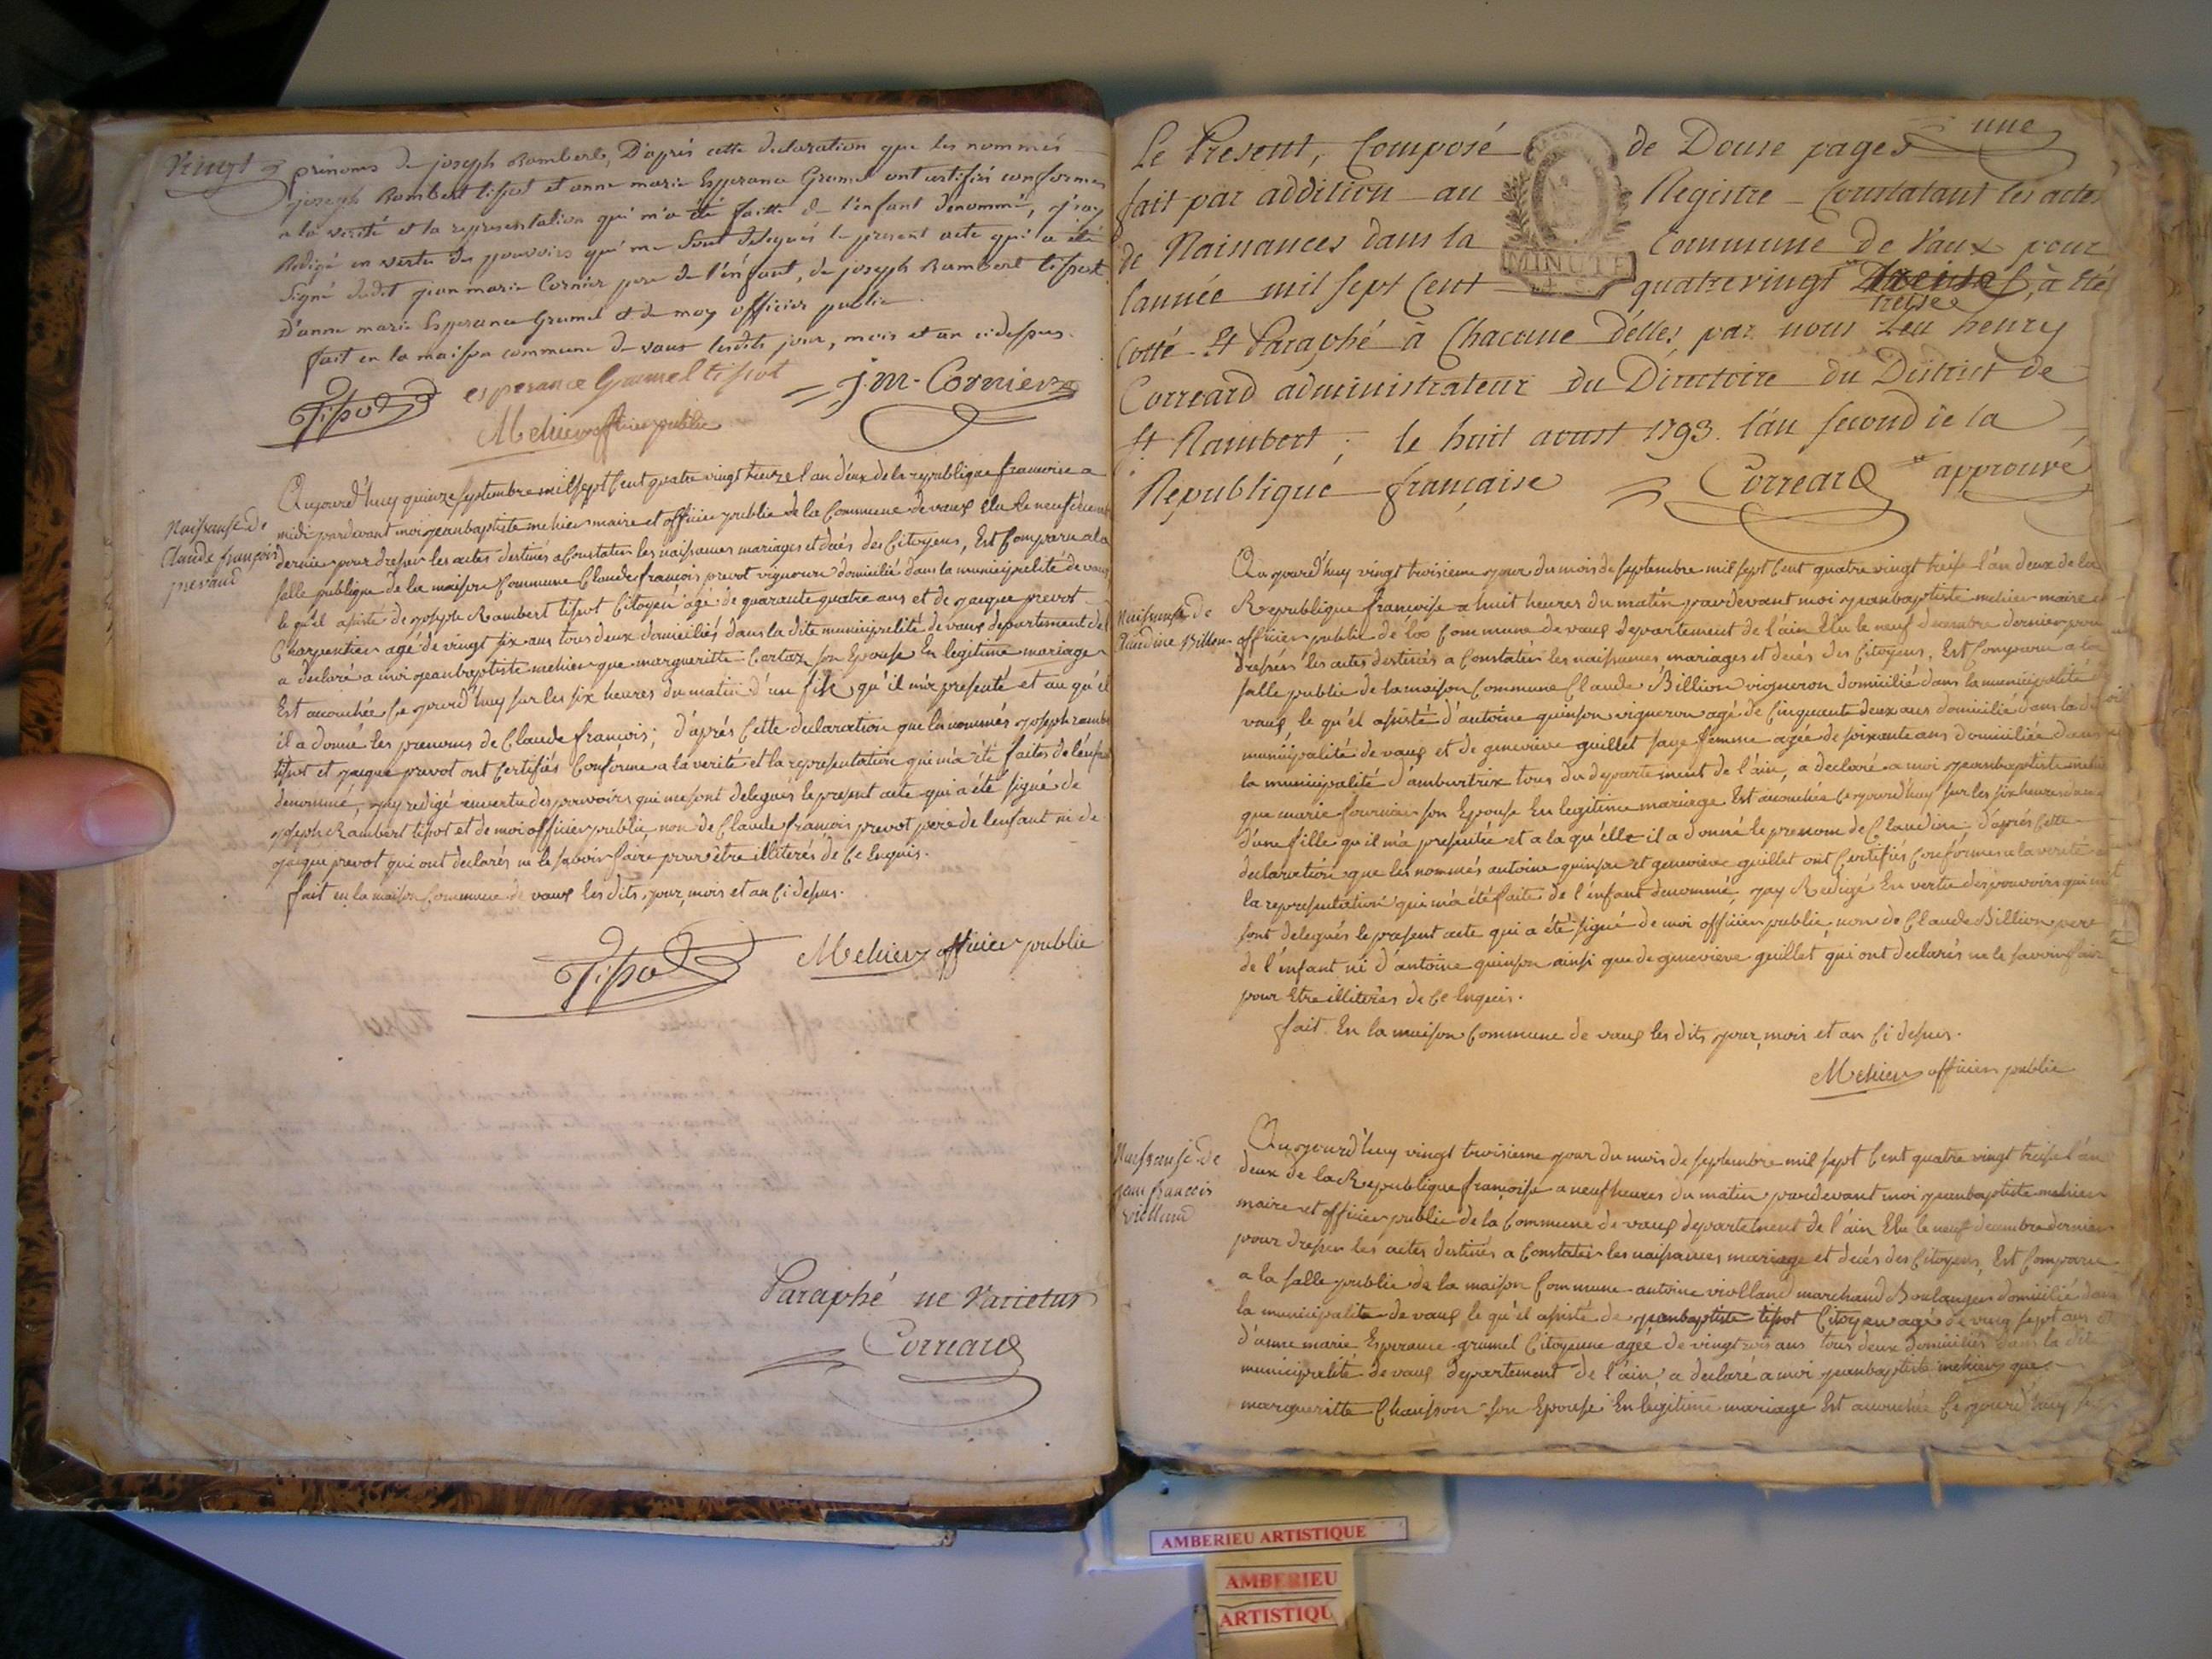 Vingt
prénoms de joseph Rambert, D'après cette declaration que les nommés
joseph Rambert tissot et anne marie Esperance Grumel ont certifiés conformes
a la verité et la representation qui m'a été faitte de l'enfant denommé, j'ay
Redigé en vertu des pouvoirs qui me sont delegués le present acte qui a été
signé dudit jean marie Cornier pere de l'énfant, de joseph Rambert tissot
D'anne marie Esperance Grumel et de moy officier public.
fait en la maison commune de vaux lesdits jour, mois et an cidessus.
Tissot esperance Grumel tissot J.M. Cornier
Mehier officier public
Naissanse de
Claude françois
prevaud
Aujourd'huy quinze septembre mil sept Cent quatre vingt treize l'an deux de la republique francoise a
midi pardevant moi jean baptiste mehier maire et officier public de la Commune de vaux elu le neuf decembre
dernier pour dresser les actes destinés a Constater les naissances mariages et décés des Citoyens, Est Comparu a la
salle publique de la maison Commune Claude francois prevot vigneron domicilié dans la municipalité de vaux
le qu'el assisté de joseph Rambert tissot Citoyen agé de quarante quatre ans et de jacque prevot
Charpentier agé de vingt six ans tous deux domiciliés dans la dite municipalité de vaux departement de l
a declaré a moi jean baptiste mehier que margueritte Cortax son Epouse En legitime mariage
Est accouchée Ce jourd'huy sur les six heures du matin d'un fils qu'il m'a presenté et au qu'el
il a donné les prenoms de Claude francois; d'aprés Cette declaration que les nommés joseph rambert
tissot et jacque prevot ont Certifiés Conforme a la verité et la representation qui m'a été faites de l'enfant
denommé, jay redigé en vertu des pouvoirs qui me sont delegués le present acte qui a été signé de
joseph Rambert tissot et de moi officier public, non de Claude francois prevot pere de l'enfant ni de
jacque prevot qui ont declarés ne le savoir faire pour être illiterés de Ce Enquis.
fait en la maison Commune de vaux les dits jour, mois et an Ci dessus.
Tissot Mehier officier public
Paraphé ne Varietur
Correard
une
Le Present, Composé de Douse pages
fait par addition au Registre Constatant les actes
de Naissances dans la Commune de Vaux pour
MINUTE
lannée mil sept Cent quatrevingt treise, à été
treise
Cotté Et Paraphé à Chacune délles par nous Leu henry
Correard administrateur du Directoire du District de
St Rambert; le huit aoust 1793. lan second de la
Republique française Correard approuvé
Naissanse de
Claudine Billion
Aujourd'huy vingt troisieme jour du mois de septembre mil sept Cent quatre vingt treise l'an deux de la
Republique francoise a huit heures du matin pardevant moi jean baptiste mehier maire et
officier public de la Commune de vaux departement de l'ain Elu le neuf decembre dernier pour
dresser les actes destinés a Constater les naissances mariages et décés des Citoyens, Est Comparu a la
salle public de la maison Commune Claude Billion vigneron domicilié dans la municipalité
vaux le qu'el assisté d'antoine quinson vigneron agé de Cinquante deux ans domicilié dans la dite
municipalité de vaux et de genevieve guillet sage femme agée de soixante ans domiciliée dans
la municipalité d'amburtrix tous du departement de l'ain, a declaré a moi jean baptiste mehier
que marie fournier son Epouse En legitime mariage Est accouchée Ce jourd'huy sur les six heures
d'une fille qu'il m'a presentée et a la qu'elle il a donné le prenom de Claudine; d'aprés Cette
declaration que les nommés antoine quinson et genevieve guillet ont Certifiés Conformes a la verité
la representation qui m'a été faite de l'enfant denommé, jay Redigé En vertu des pouvoirs qui me
sont delegués le present acte qui a été signé de moi officier public, non de Claude Billion pere
de l'enfant ni d'antoine quinson ainsi que de genevieve guillet qui ont declarés ne le savoir faire
pour Etre illiterés de Ce Enquis.
fait En la maison Commune de vaux les dits jour, mois et an Ci dessus.
Mehier officier public
Naissanse de
jean francois
violland
Aujourd'huy vingt troisieme jour du mois de septembre mil sept Cent quatre vingt treise l'an
deux de la Republique françoise a neuf heures du matin pardevant moi jean baptiste mehier
maire et officier public de la Commune de vaux departement de l'ain Elu le neuf decembre dernier
pour dresser les actes destinés a Constater les naissances mariage et décés des Citoyens, Est Comparu
a la salle public de la maison Commune antoine violland marchand Boulanger domicilié dans
la municipalité de vaux le qu'el assisté de jean baptiste tissot Citoyen agé de vingt sept ans et
d'anne marie Esperance grumel Citoyenne agée de vingt trois ans tous deux domiciliés dans la dite
municipalité de vaux departement de l'ain, a declaré a moi jean baptiste mehier que
margueritte Chausson son Epouse En legitime mariage Est accouchée Ce jourd'huy
AMBERIEU ARTISTIQUE
AMBERIEU
ARTISTIQU